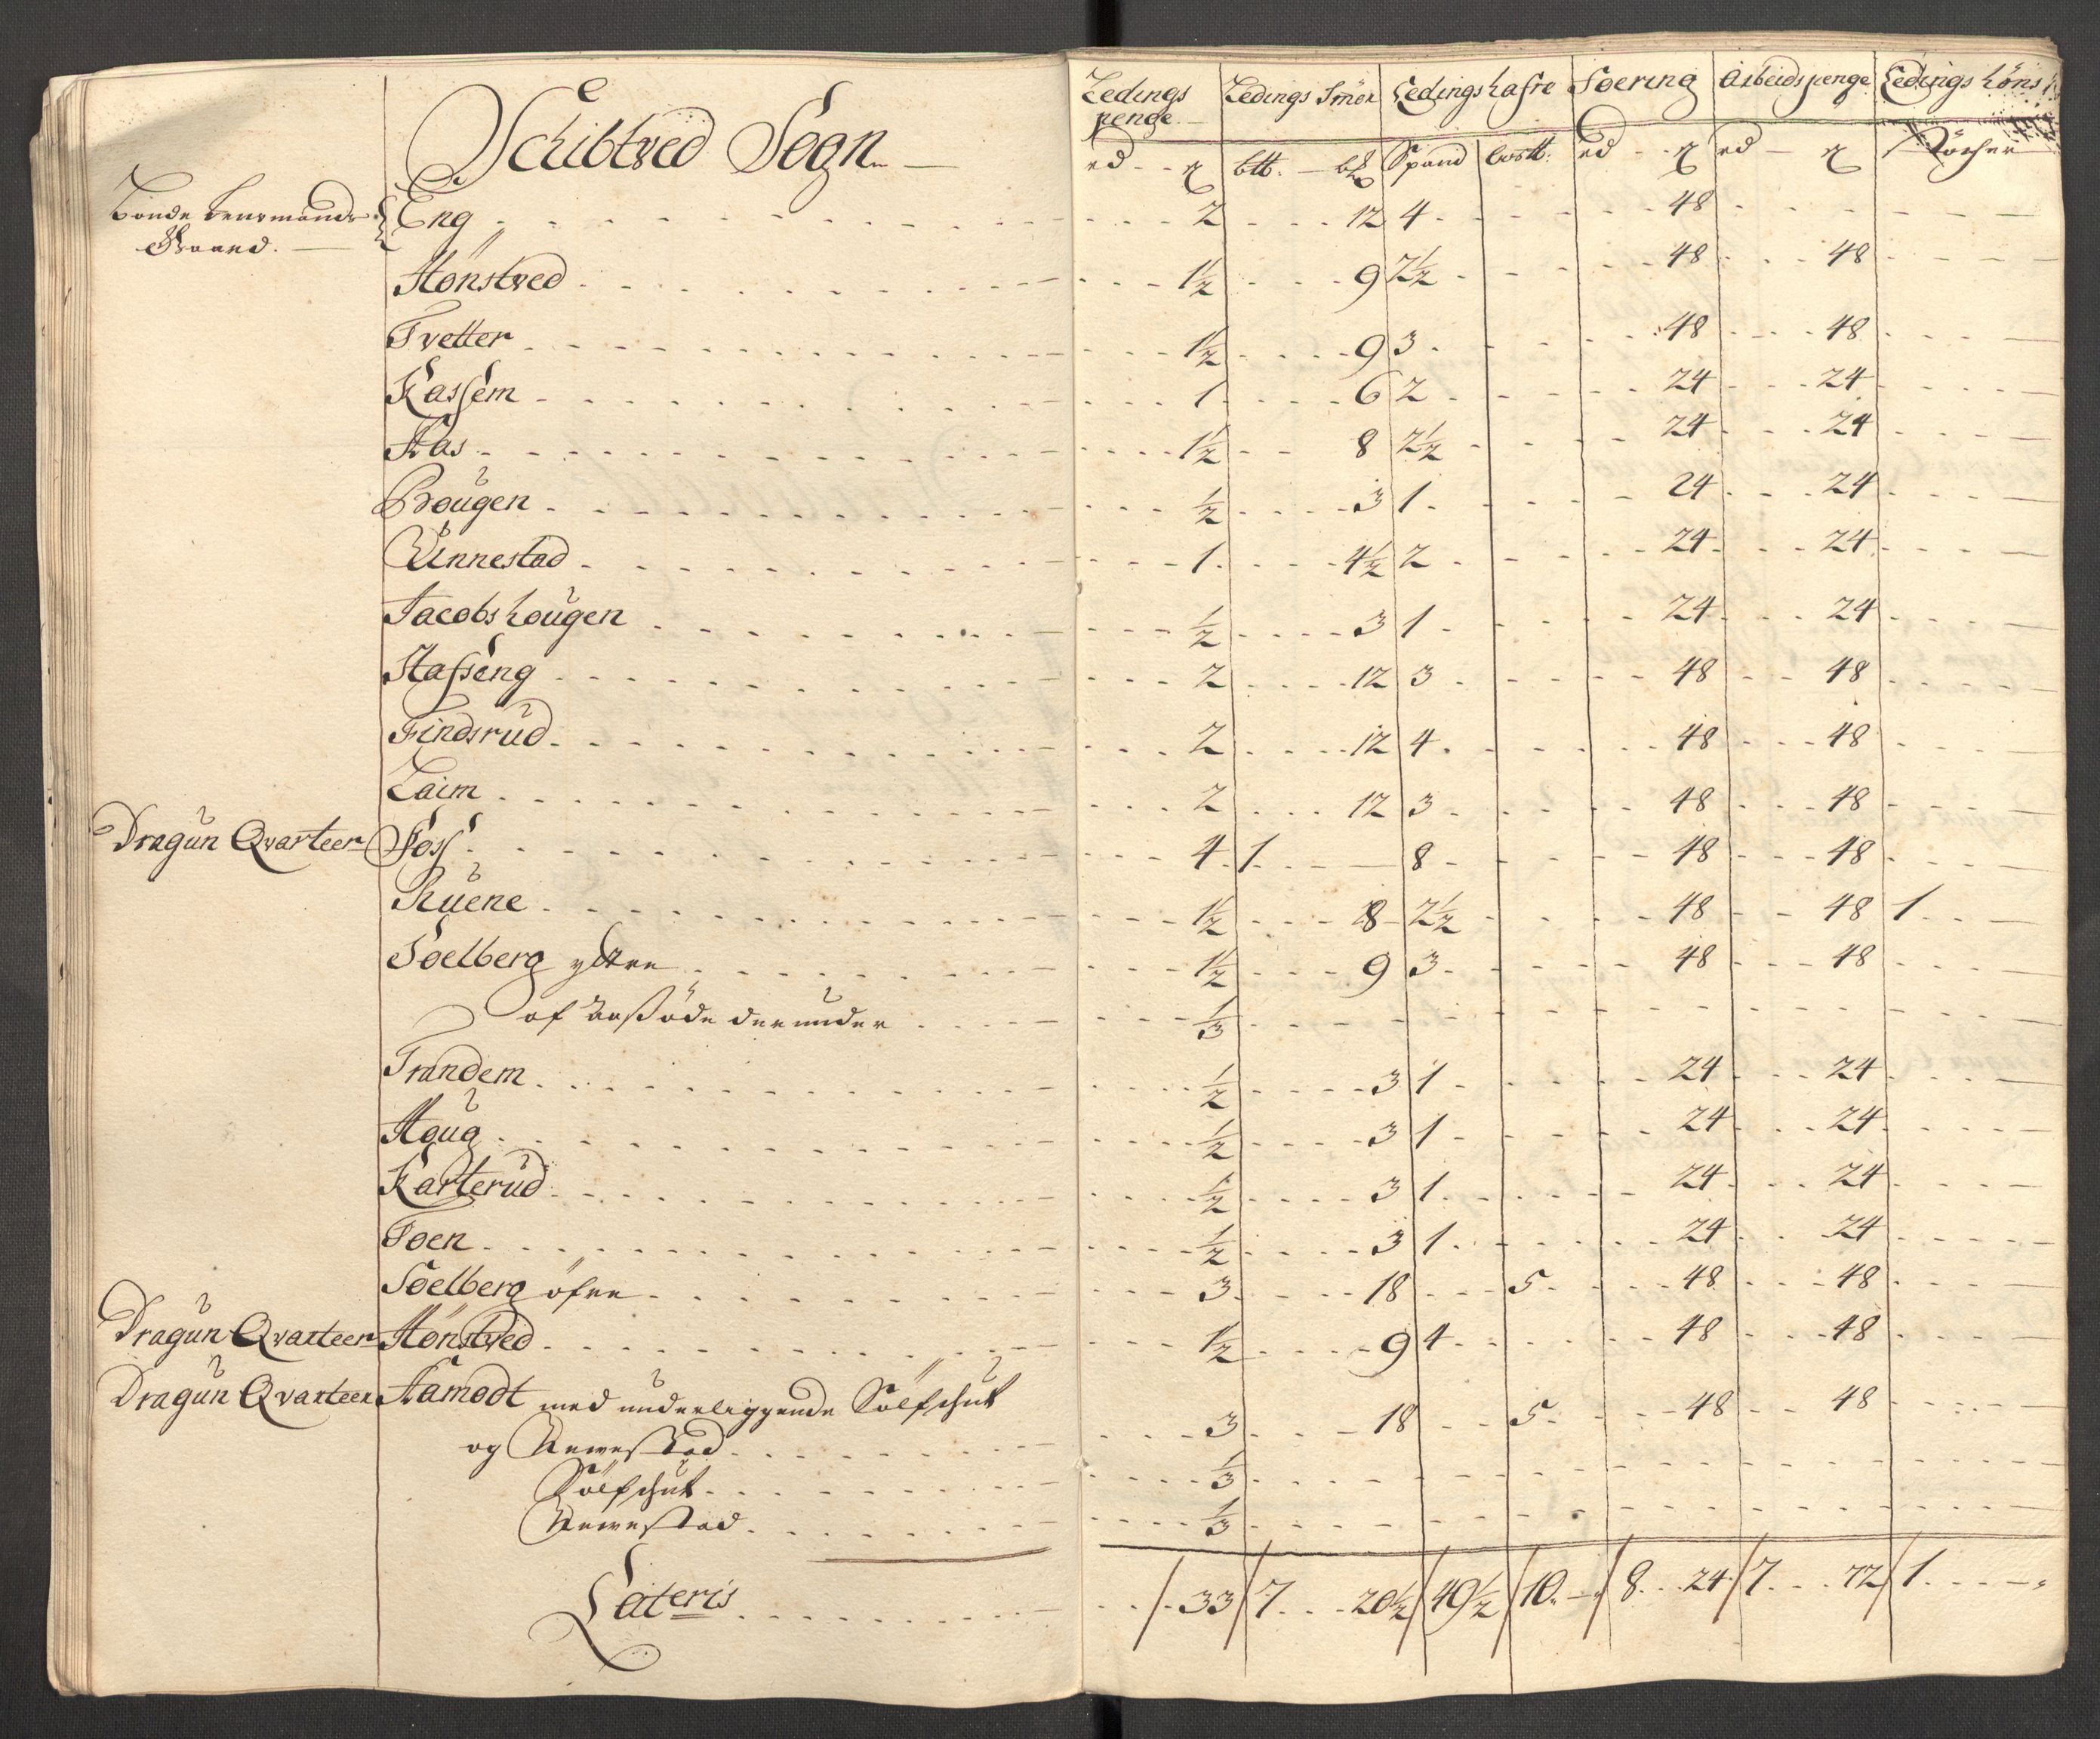 Schibtved Sogn
Ledings penge | Ledings Smör | Ledings hafre | Foering | Arbeids penge | Ledings höns
rd - ß | btt. - b℔ | Spand | bott: | rd - ß | rd - ß | Störcher
Bonde Lensmands Gaard. Eng 2 12 4 48
Hönstved 1½ 9 2½ 48 48
Tvetter 1½ 9 3 48 48
Kassem 1 6 2 24 24
Aas 1½ 8 2½ 24 24
Brougen ½ 3 1 24 24
Unnestad 1 4½ 2 24 24
Jacobshougen ½ 3 1 24 24
Hafseng 2 12 3 48 48
Findsrud 2 12 4 48 48
Laim 2 12 3 48 48
Dragun Qvarteer Foss 4 1 — 8 48 48
Ruene 1½ 8 2½ 48 48 1
Soelberg yttre 1½ 9 3 48 48
af derunder ⅓
Trandem ½ 3 1 24 24
Houg ½ 3 1 24 24
Karterud ½ 3 1 24 24
Toen ½ 3 1 24 24
Soelberg öfre 3 18 5 48 48
Dragun Qvarteer Hönstved 1½ 9 4 48 48
Dragun Qvarteer Aamodt med underliggende Sölfshut
og Unnestad 3 18 5 48 48
Sölfshut ⅓
Unnestad ⅓
Lateris 33 7 20½ 49½ 10 8 24 7 72 1